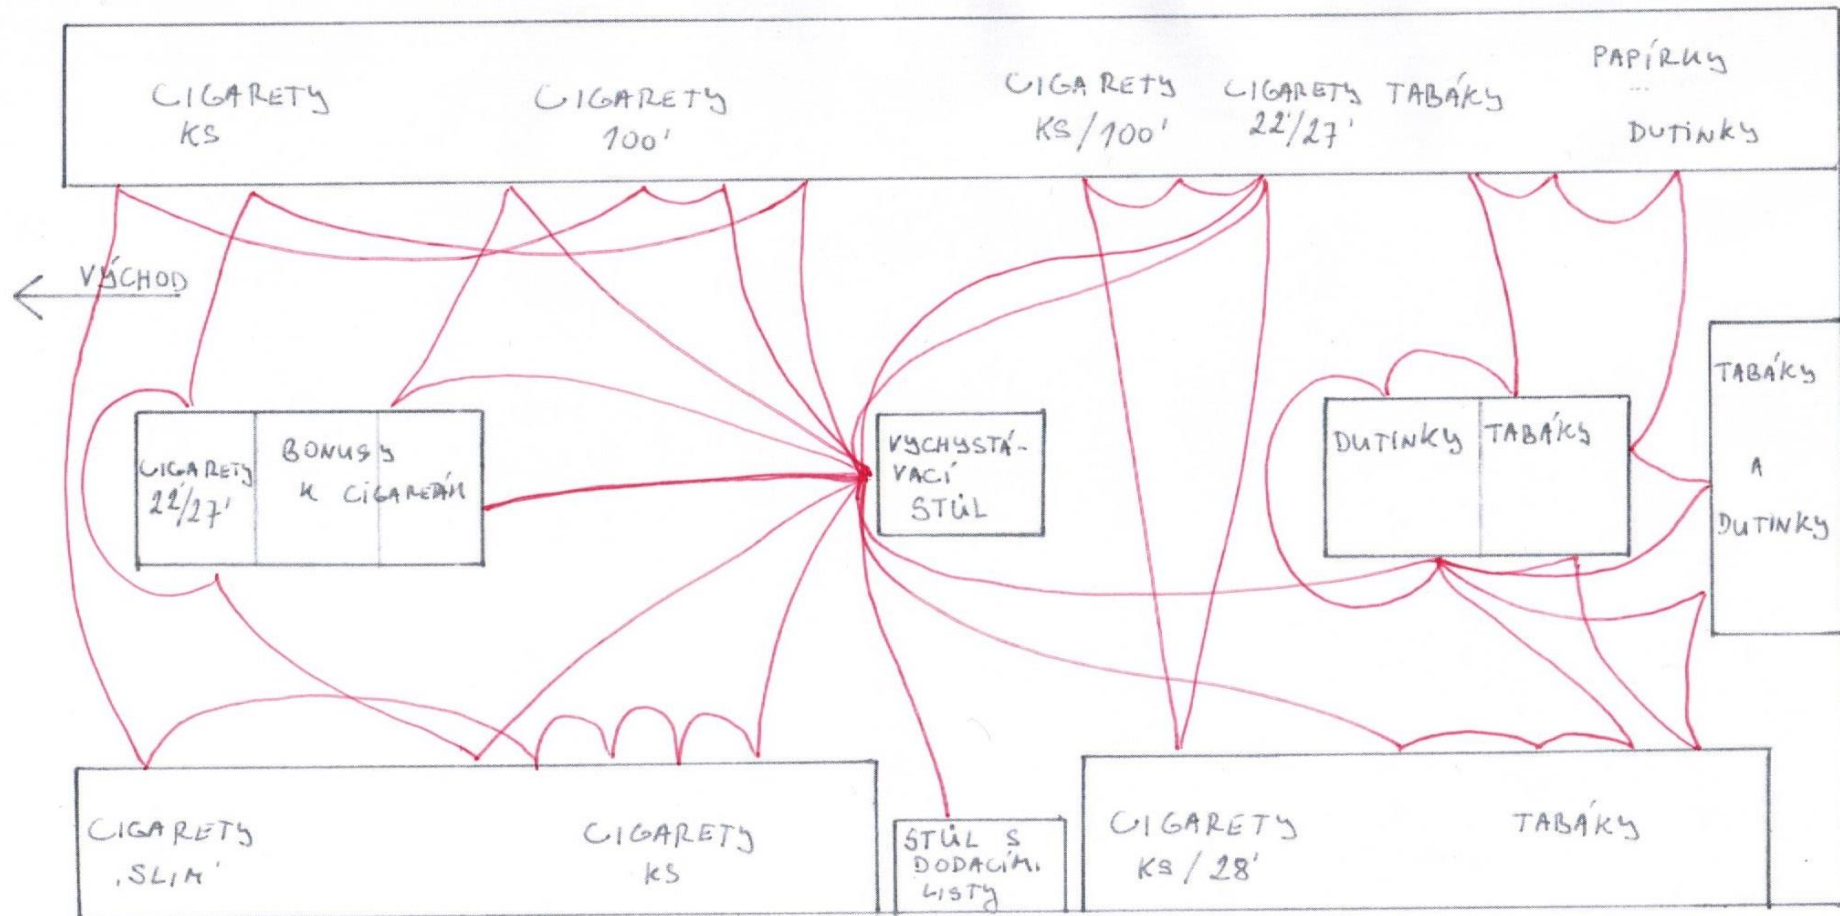 CIGARETY
KS
CIGARETY
100'
CIGARETY
KS/100'
CIGARETY
22'/27'
TABÁKY
PAPÍRKY
DUTINKY
VÝCHOD
CIGARETY
22'/27'
BONUSY
K CIGARETÁM
VYCHYSTÁ-
VACÍ
STŮL
DUTINKY
TABÁKY
TABÁKY
A
DUTINKY
CIGARETY
'SLIM'
CIGARETY
KS
STŮL S
DODACÍMI
LISTY
CIGARETY
KS/28'
TABÁKY